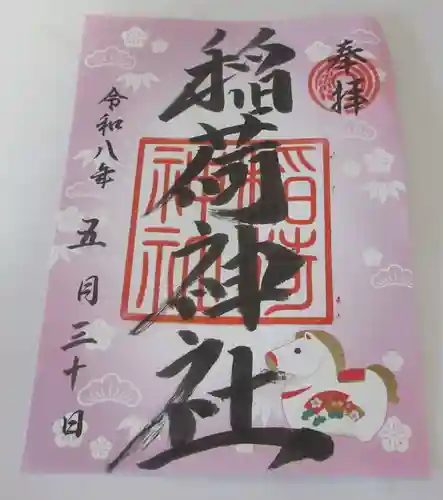 奉拝
稲荷神社
令和八年
五月三十日
稲荷
神社